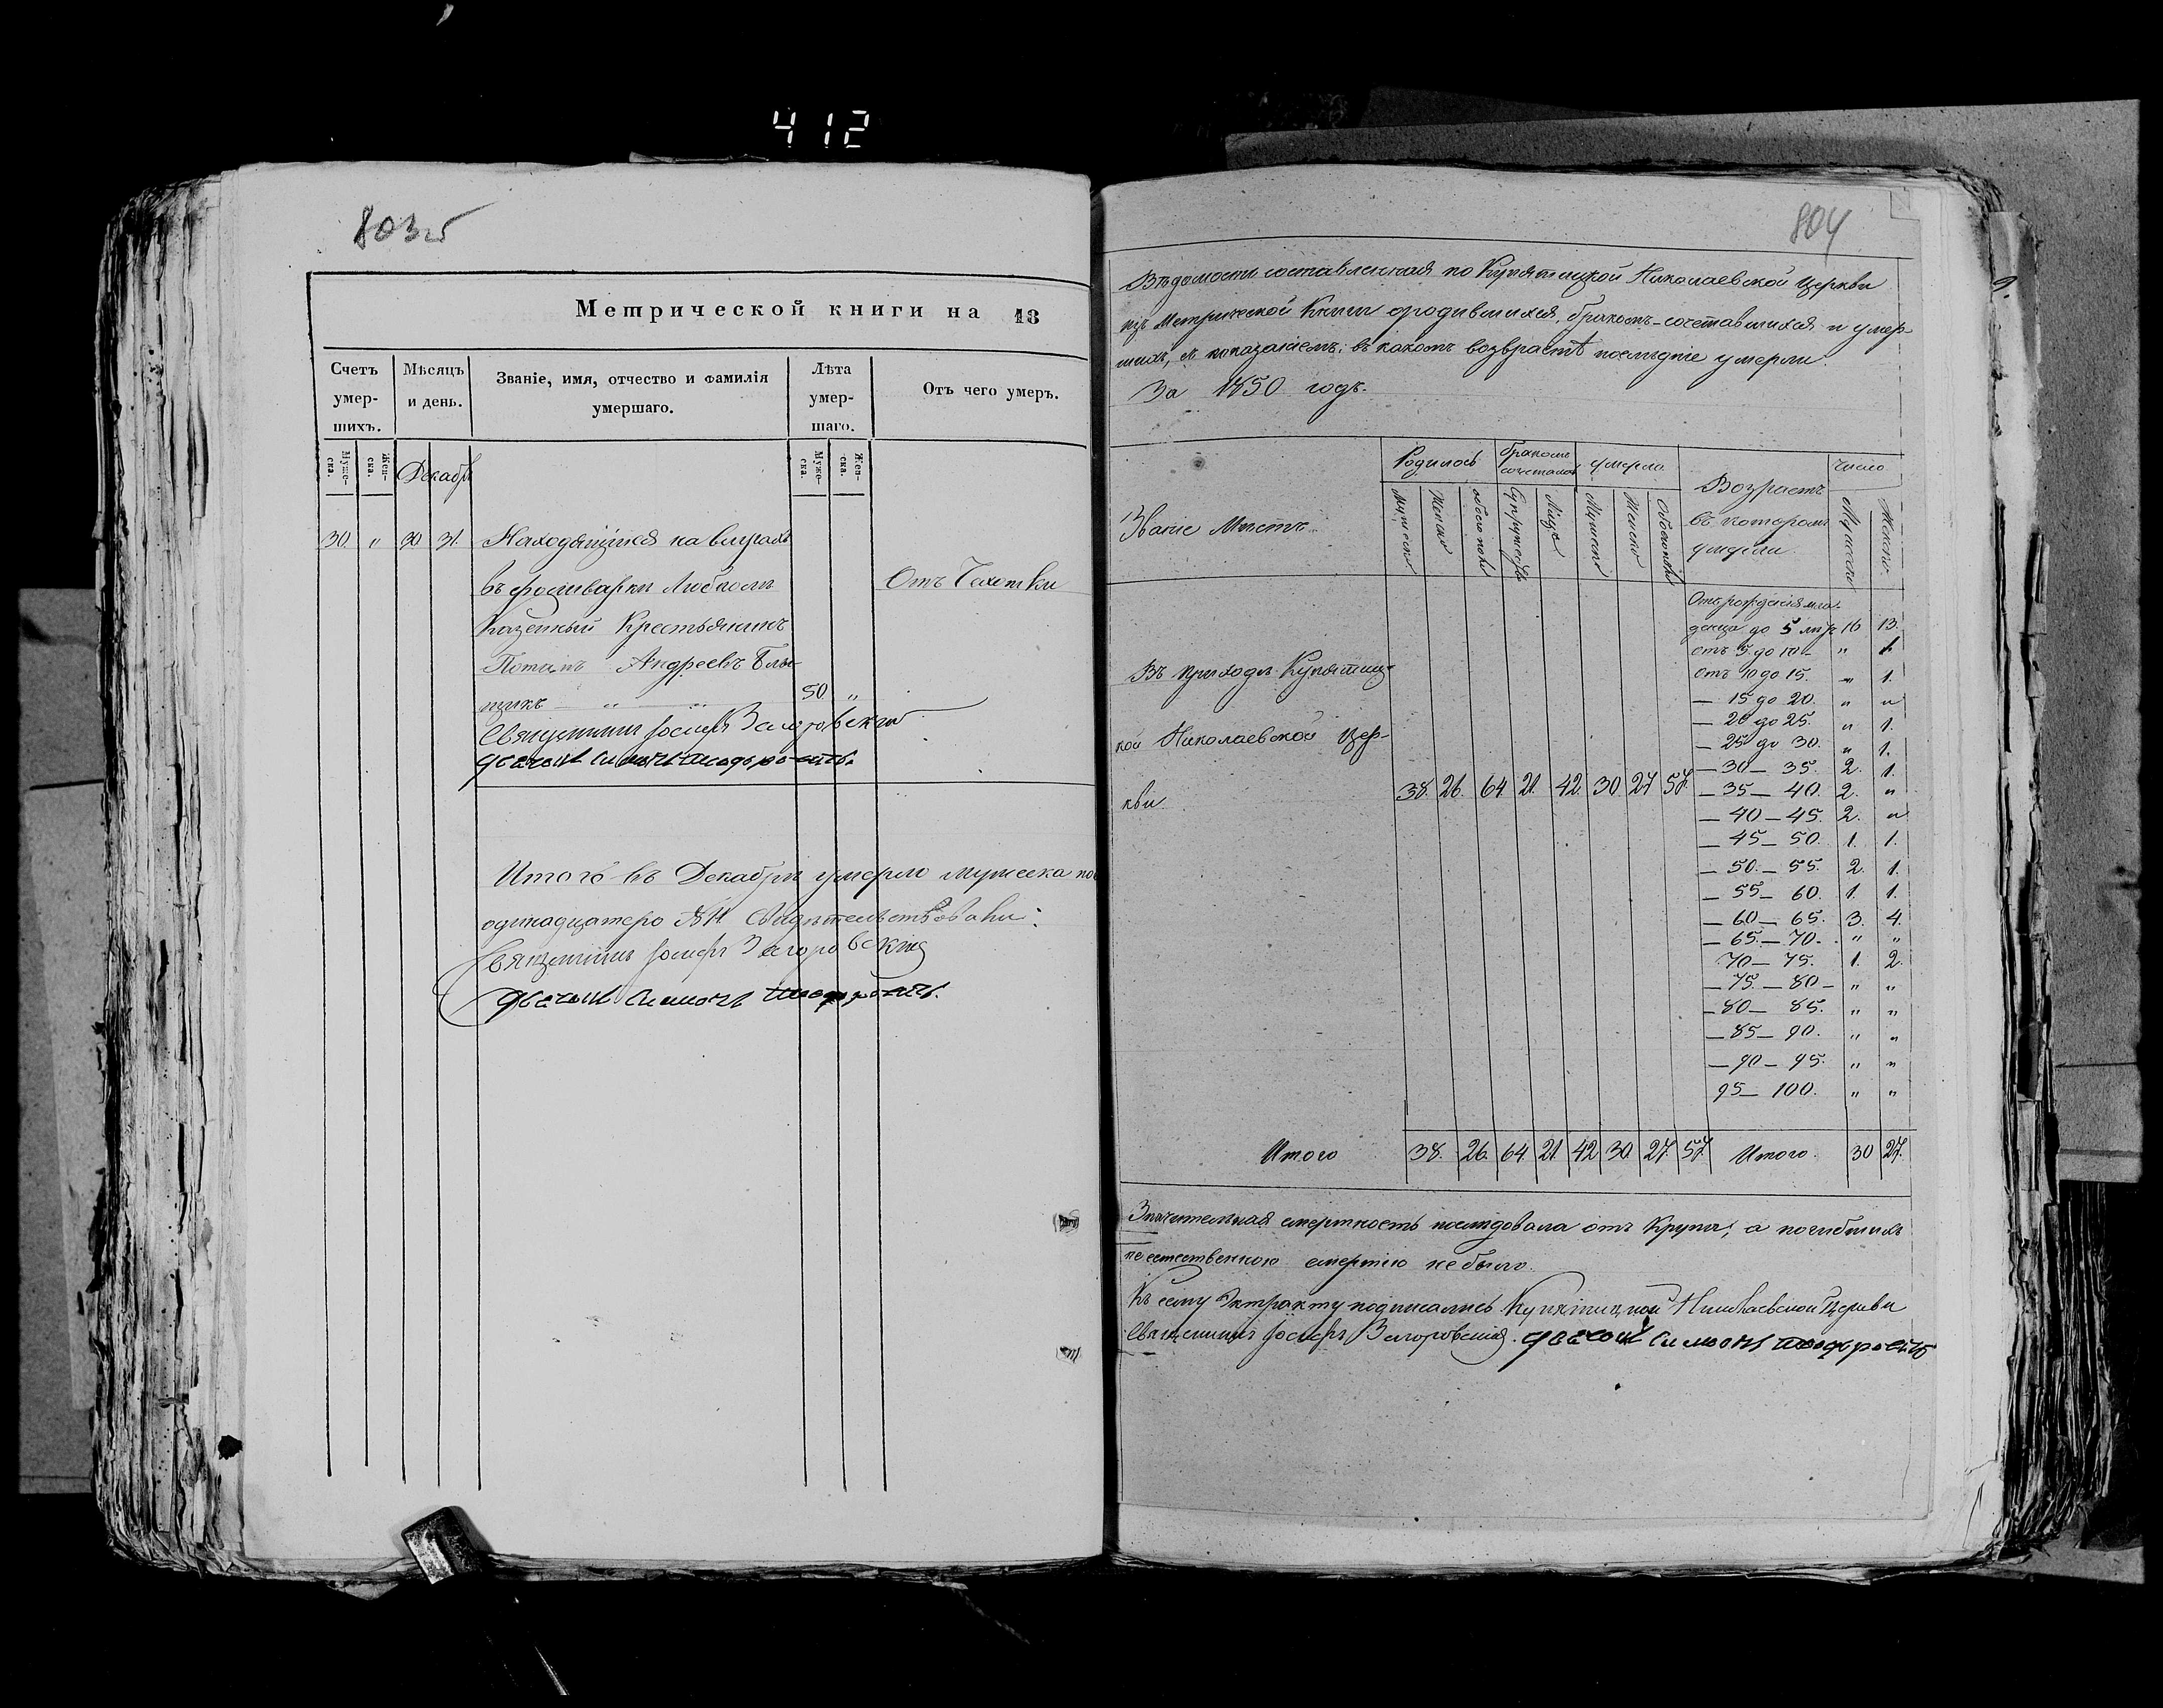 412
803об
Метрической книги на 18
Счетъ умер-шихъ.
Мѣсяцъ и день.
Званіе, имя, отчество и фамилія умершаго.
Лѣта умер-шаго.
Отъ чего умеръ.
Муже-ска. Жен-ска. Декабрь Муже-ска. Жен-ска.
30. „ 30 31. Находящійся на
въ фольварки Любномъ
Отъ Чахотки
Казенный Крестьянинъ
Андреевъ
50 „
Священникъ Іосифъ Загоровскій
дьячокъ Симонъ
Итого въ Декабрѣ умерло мужеска по
одинадцатеро № 11 Свидѣтельствовали:
Священникъ Іосифъ Загоровскій
дьячокъ Симонъ
804
Вѣдомость составленная по Купятицкой Николаевской церкви
изъ Метрической Книги о родившихся, бракомъ-сочетавшихся и умер-
шихъ, съ показаніемъ: въ какомъ возврастѣ последніе умерли.
За 1850 годъ.
Званіе Мѣстъ
Родилось
бракомъ сочеталось
умерло
Возрастъ въ которомъ умерли
число
Мужеск Женско обоего пола Супружествъ Лица Мужеск Женско Обоего пола Мужеск Женско
Отъ рожденія мла-
денца до 5 лѣтъ 16 13.
отъ 5. до 10 - „ 1
отъ 10 до 15. „ 1.
— 15 до 20. „ „
— 20 до 25. „ 1.
— 25 до 30. „ 1.
— 30 — 35. 2. 1.
— 35 — 40. 2. „
— 40 — 45. 2. „
— 45 — 50. 1. 1.
— 50. — 55. 2. 1.
— 55 — 60. 1. 1.
— 60 — 65. 3. 4.
— 65. — 70. „ „
70 — 75. 1. 2.
— 75. — 80 — „ „
— 80 — 85. „ „
— 85 — 90. „ „
— 90 — 95. „ „
95 — 100. „ „
Въ приходѣ Купятиц-
кой Николаевской цер-
кви 38. 26. 64 21. 42. 30. 27 57.
Итого 38. 26. 64 21. 42 30. 27. 57. Итого. 30 27.
Значительная смертность последовала отъ Крупы; а погибшихъ
неестественною смертію небыло.
Къ сему Эктракту подписались Купятицкой Николаевской Церкви
Священникъ Іосифъ Загоровскій. дьячокъ Симонъ